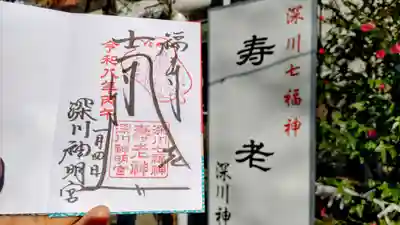 深川七福神
寿老
深川神
令和八年丙午
一月四日
深川神明宮
深川七福神
寿老神
深川神明宮